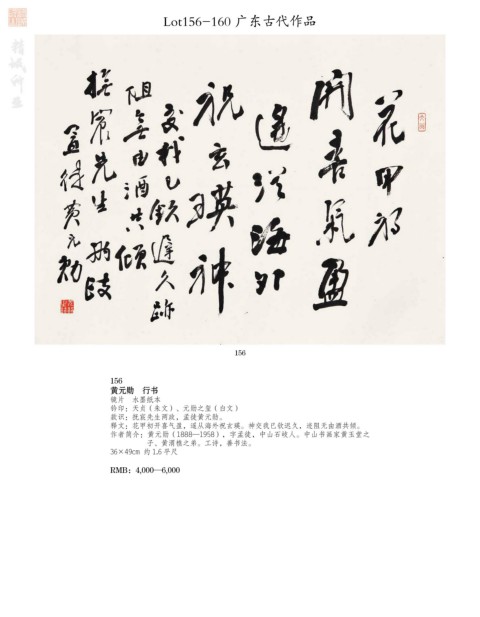 Lot156-160 广东古代作品
精诚所至
花甲初
開喜氣盈
遥從海外
祝玄瑛神
交我已欽遲久跡
阻無由酒共傾
撫宸先生 兩政
孟徒黄元勛
156
156
黄元勋 行书
镜片 水墨纸本
钤印：天贞（朱文）、元勋之玺（白文）
款识：抚宸先生两政，孟徒黄元勋。
释文：花甲初开喜气盈，遥从海外祝玄瑛。神交我已钦迟久，迹阻无由酒共倾。
作者简介：黄元勋（1888—1958），字孟徒，中山石岐人。中山书画家黄玉堂之
子、黄渭樵之弟。工诗，善书法。
36×49cm 约1.6平尺
RMB: 4,000—6,000